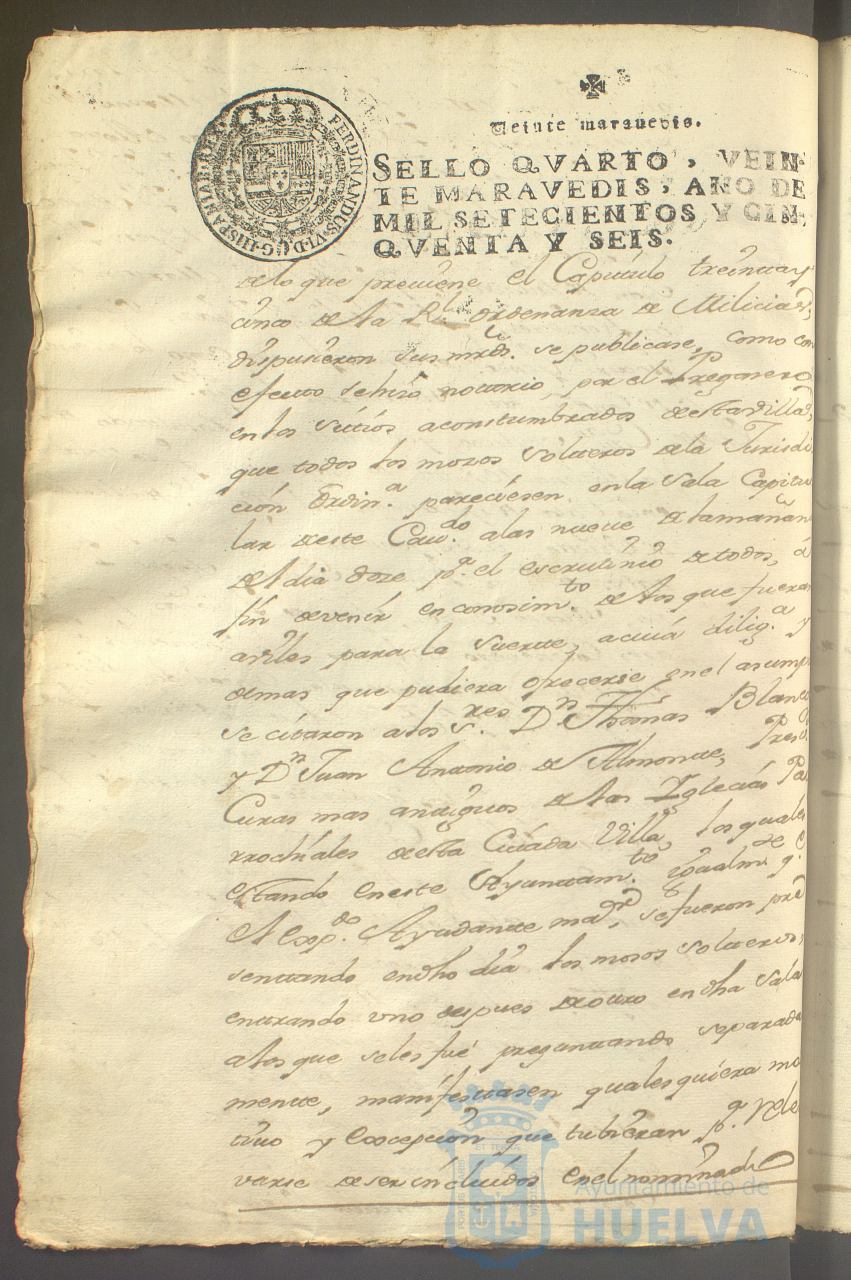 Veinte maravedis.
SELLO QVARTO, VEIN-
TE MARAVEDIS, AÑO DE
MIL SETECIENTOS Y CIN-
QVENTA Y SEIS.
FERDINANDUS·VI·D·G·HISPANIAR·REX
de lo que previene el Capitulo treinta y
cinco de la Rl. ordenanza de Milicias,
dispusieron sus mrds. se publicase, como con
efecto se hizo notorio, por el Pregonero
en los sitios acostumbrados de esta villa,
que todos los mozos solteros de la Jurisdi
ción Ordin.a pareciesen en la Sala Capitu
lar de este Cav.do a las nueve de la mañan
del dia doze p.a el escrutinio de todos, a
fin de venir en conosim.to de los que fueran
aviles para la suerte, a cuia dilig.a y
demas que pudiera ofrecerse en el asump
se citaron a los s.res Dn. Thomas Blanco
y Dn Juan Antonio de Almonte, Presv
Curas mas antiguos de las Iglesias Pa
rrochiales de esta Citada Villa, los quales
estando en este Ayuntam.to Ygualm.te q.e
el exp.do Ayudante mai.r, se fueron pre
sentando en dho dia los mosos solteros,
entrando uno despues de otro en dha Sala
a los que se les fué preguntando separada
mente, manifestasen qualesquiera mo
tivo y excepcion que tubieran p.a rele
varse de ser incluidos en el nominado
Ayuntamiento de
HUELVA